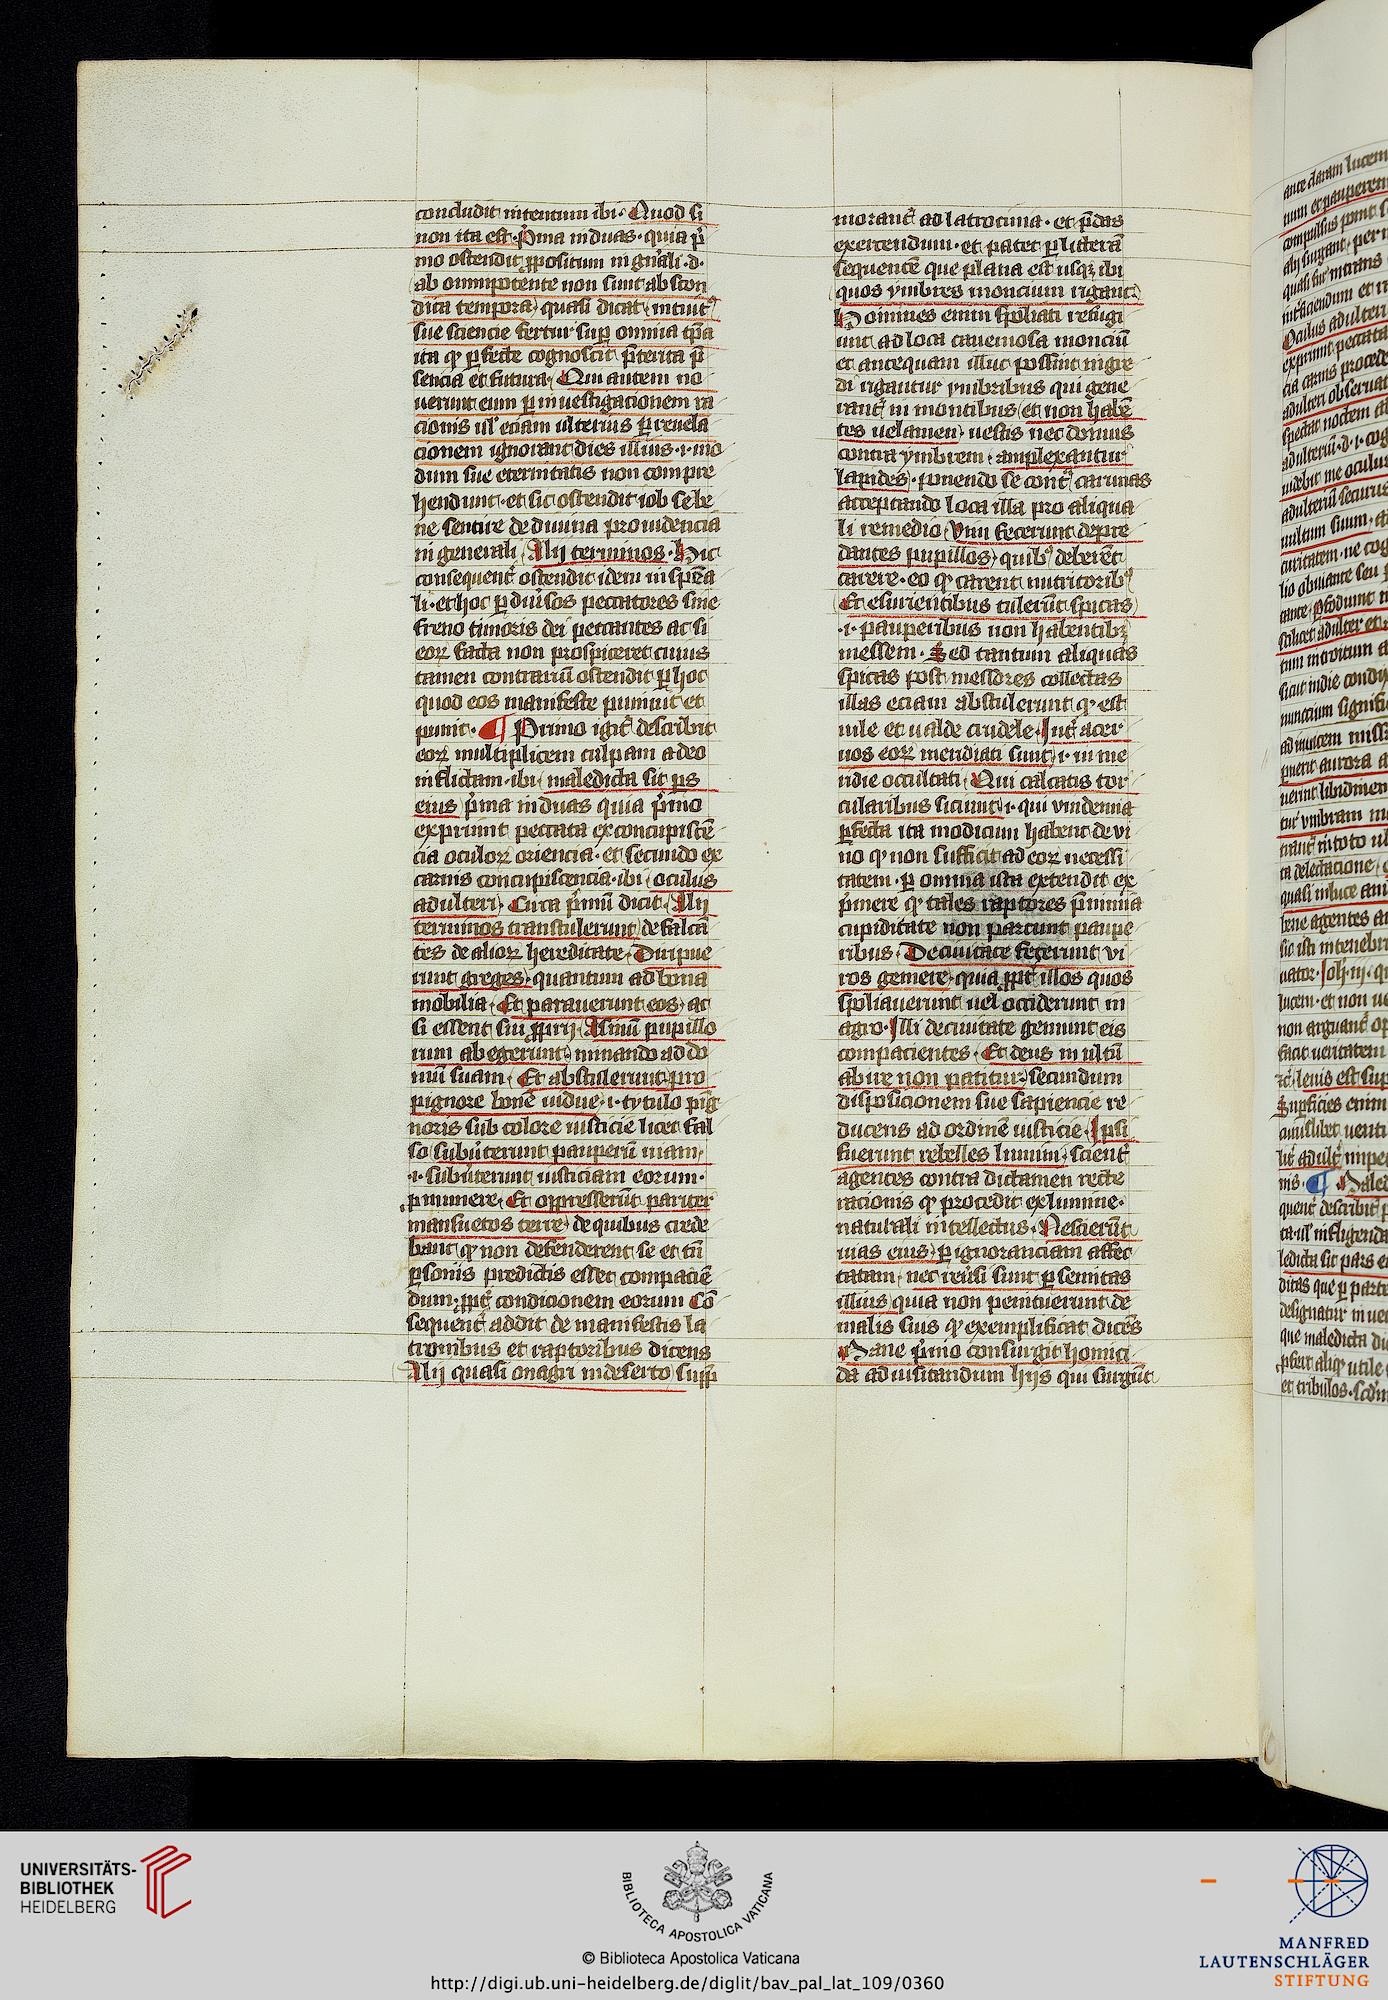 concludit intentum ibi · Quod si
non ita est · p̃ma in duas · quia p̃
mo ostendit ꝓpositum in gñali · d ·
ab omnipotente non sunt abscon
dita tempora quasi dicat intuit9
sue sciencie fertur sup̲ omnia tp̃a
ita ꝙ ꝑfecte cognoscit p̃terita p̃
sencia et futura · Qui autem no
uerunt eum ꝑ inuestigacionem ra
cionis ul' eciam ulterius ꝑ reuela
cionem ignorant dies illius · i · mo
dum sue eternitatis non compre
hendunt · et sic ostendit iob se be
ne sentire de diuina prouidencia
in generali Alij terminos · Hic
consequent᷑ ostendit idem in sp̃cia
li · et hoc ꝑ diũsos peccatores sine
freno timoris dei peccantes ac si
eoꝝ facta non prospiceret cuius
tamen contrariũ ostendit ꝑ hoc
quod eos manifeste puniuit et
punit · ¶ Primo igit᷑ describit
eoꝝ multiplicem culpam a deo
inflictam · ibi maledicta sit ꝑs
eius p̃ma in duas quia p̃mo
exprimit peccata ex concupiscẽ
cia oculoꝝ oriencia · et secundo ex
carnis concupiscencia · ibi oculus
adulteri Circa p̃mũ dicit Alij
terminos transtulerunt defalcã
tes de alioꝝ hereditate · Diripue
runt greges · quantum ad bona
mobilia · Et pauerunt eos · ac
si essent sui ꝓprij · Asinũ pupillo
rum abegerunt minando ad do
mũ suam · Et abstulerunt pro
pignore bouẽ uidue · i · tytulo pig̃
noris sub colore iusticie licet fal
so subũterunt pauperũ uiam ·
· i · subũterunt iusticiam eorum ·
ꝑ munere · Et oppresserũt pariter
mansuetos terre de quibus crede
bant ꝙ non defenderent se et tñ
ꝑsonis predictis esset compaciẽ
dum · ꝓpt᷑ condicionem eorum Cõ
sequent᷑ addit de manifestis la
tronibus et raptoribus dicens
Alij quasi onagri in deserto supp̃
morant᷑ ad latrocinia · et p̃das
exercendum · et patet ꝑ litterã
sequentẽ que plana est usqꝫ ibi
quos ymbres moncium rigant
Homines enim spoliati refugi
unt ad loca cauernosa monciũ
et antequam illuc possint ingre
di rigantur ymbribus qui gene
rant᷑ in montibus et non habẽ
tes uelamen uestis nec domus
contra ymbrem · amplexantur
lapides · ponendo se cont᷑ carinas
acceptando loca illa pro aliqua
li remedio Vim fecerunt depre
dantes pupillos quib9 deberẽt
carere · eo ꝙ carent nutritorib9
Et esurientibus tulerũt spicas
· i · pauperibus non habentibꝫ
messem · Sed tantum aliquas
spicas post messores collectas
illas eciam abstulerunt ꝙ est
uile et ualde crudele · Int᷑ acer
uos eoꝝ meridiati sunt · i · in me
ridie occultati Qui calcatis tor
cularibus siciunt · i · qui vindemia
ꝑfecta ita modicum habent de vi
no ꝙ non sufficit ad eoꝝ necessi
tatem · ꝑ omnia ista extendit ex
p̃mere ꝙ tales raptores p̃ nimia
cupiditate non parcunt paupe
ribus · De ciuitate fecerunt vi
ros gemere · quia ꝓpt᷑ illos quos
spoliauerunt uel occiderunt in
agro · Illi de ciuitate gemunt eis
compacientes · Et deus inultũ
abire non patitur secundum
disposicionem sue sapiencie re
ducens ad ordinẽ iusticie · Ipsi
fuerunt rebelles lumini · scient᷑
agentes contra dictamen recte
racionis ꝙ procedit ex lumine ·
naturali intellectus · Nescierũt
uias eius ꝑ ignoranciam affec
tatam · nec reũsi sunt ꝑ semitas
illius quia non penituerunt de
malis suis ꝙ exemplificat dicẽs
Mane p̃mo consurgit homici
da ad uisitandum hijs qui surgũt
UNIVERSITÄTS-
BIBLIOTHEK
HEIDELBERG
BIBLIOTECA APOSTOLICA VATICANA
© Biblioteca Apostolica Vaticana
http://digi.ub.uni-heidelberg.de/diglit/bav_pal_lat_109/0360
MANFRED
LAUTENSCHLÄGER
STIFTUNG